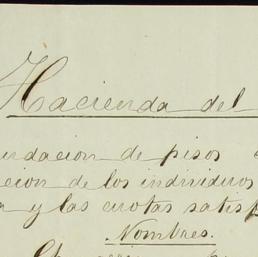 Hacienda del
udacion de pisos
cion de los individuos
y las cuotas satisf
Nombres.